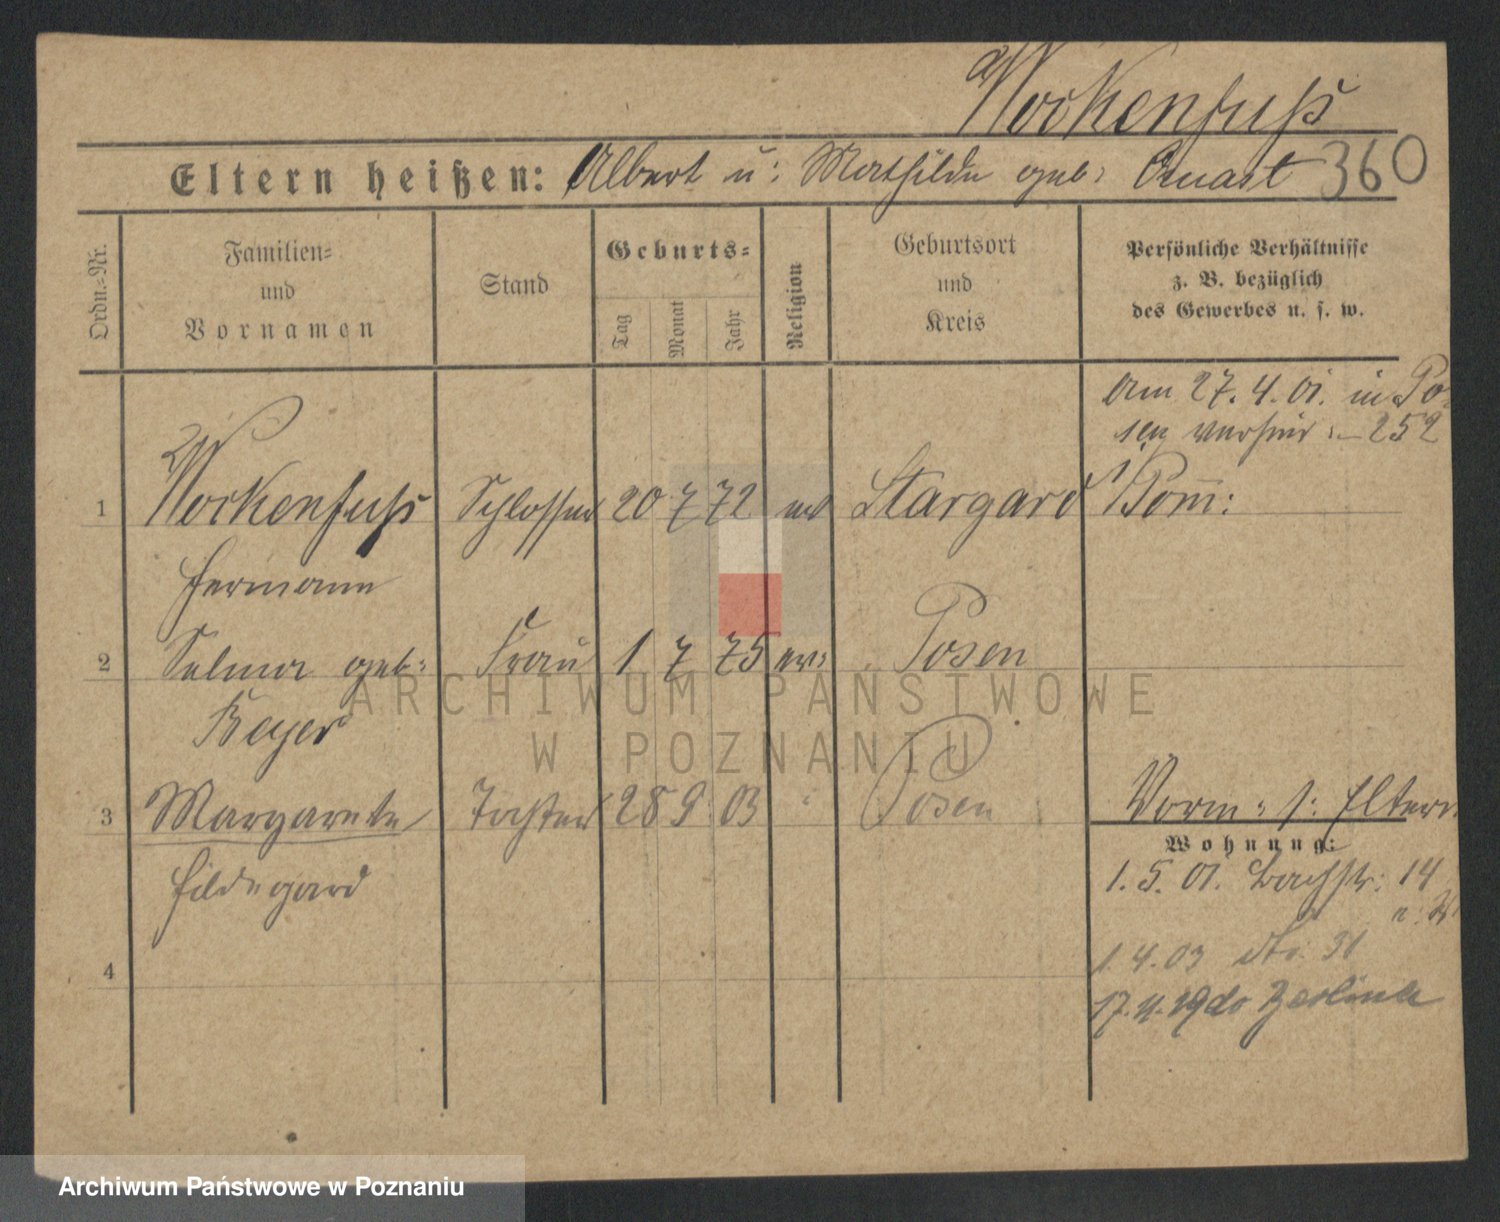 Wockenfuß
Eltern heißen: Albert u: Mathilde geb: Quast 360
Ordn.-Nr.
Familien-
und
Vornamen
Stand
Geburts-
Tag
Monat
Jahr
Religion
Geburtsort
und
Kreis
Persönliche Verhältnisse
z. B. bezüglich
des Gewerbes u. s. w.
am 27.4.01. in Po-
sen verheir: 252
1 Wockenfuß Schlosser 20 7 72 ev Stargard /Pom:
Hermann
2 Selma geb: Frau 1 7 75 ev: Posen
Beyer
3 Margarete Tochter 28 9 03 Posen
Hildegard
Vorm: s: Eltern
Wohnung:
1.5.01. Bachstr: 14
1.4.03 31
17.4.19 do
4
ARCHIWUM PAŃSTWOWE
W POZNANIU
Archiwum Państwowe w Poznaniu